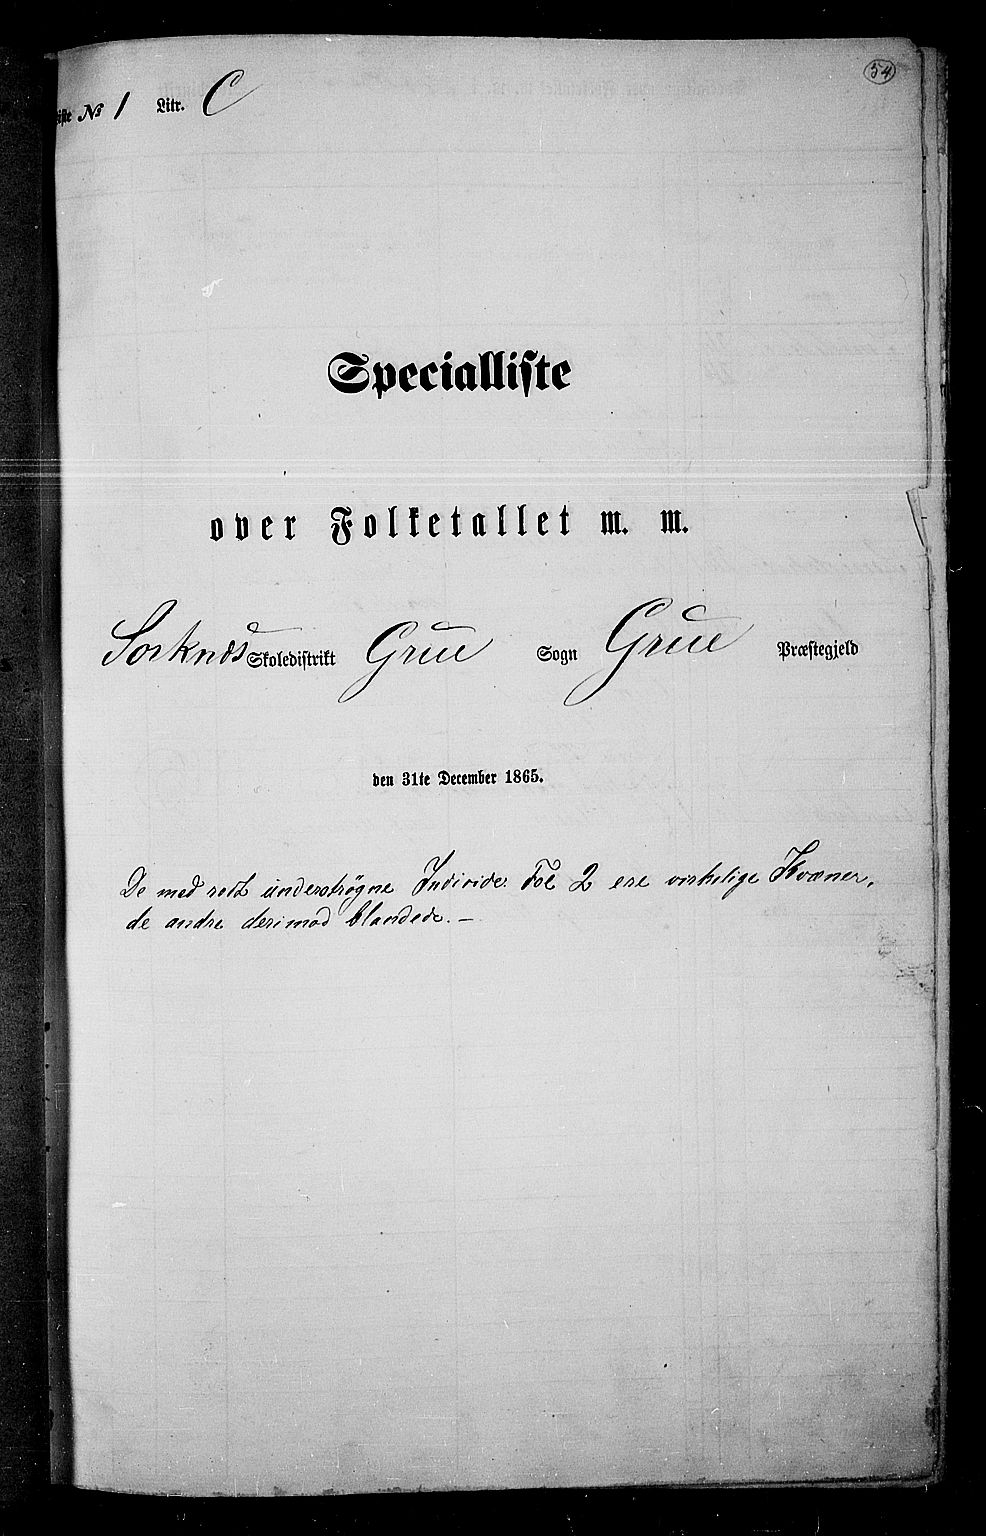 54
iste № 1 Litr. C
Specialliste
over Folketallet m. m.
Sorknæs Skoledistrikt Grue Sogn Grue Præstegjeld
den 31te December 1865.
De med rødt understrøgne Individer Fol 2 ere virkelige Kvæner,
de andre derimod blandede. —